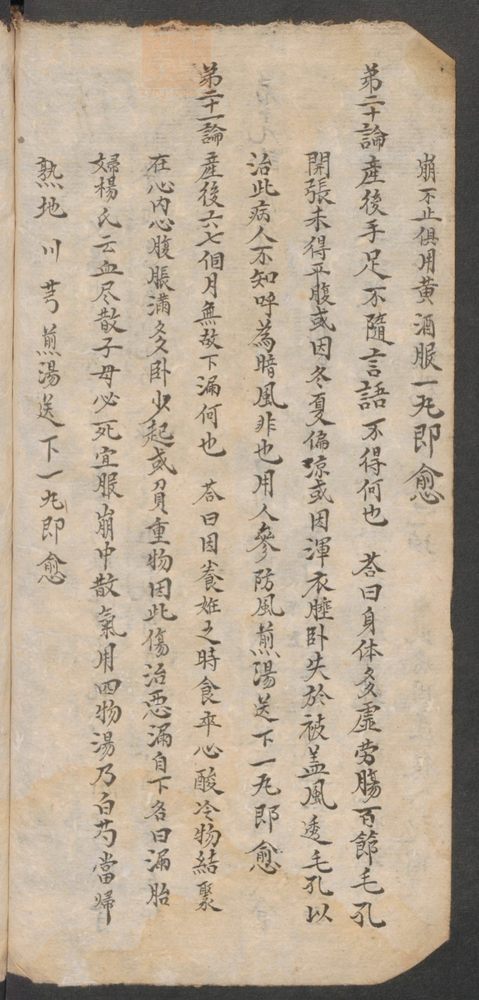 崩不止俱用黄酒服一丸即愈
第二十論 產後手足不隨言語不得何也 荅曰身体多虛劳腸百節毛孔
開張未得平腹或因冬夏偏凉或因渾衣睡卧失於被盖風透毛孔以
治此病人不知呼為暗風非也用人參防風煎湯送下一丸即愈
第二十一論 產後六七個月無故下漏何也 荅曰因養姙之時食平心酸冷物結聚
在心内心腹脹滿多卧少起或負重物因此傷治惡漏自下名曰漏胎
婦楊氏云血尽散子母必死宜服崩中散氣用四物湯乃白芍當歸
熟地 川芎 煎湯送下一丸即愈